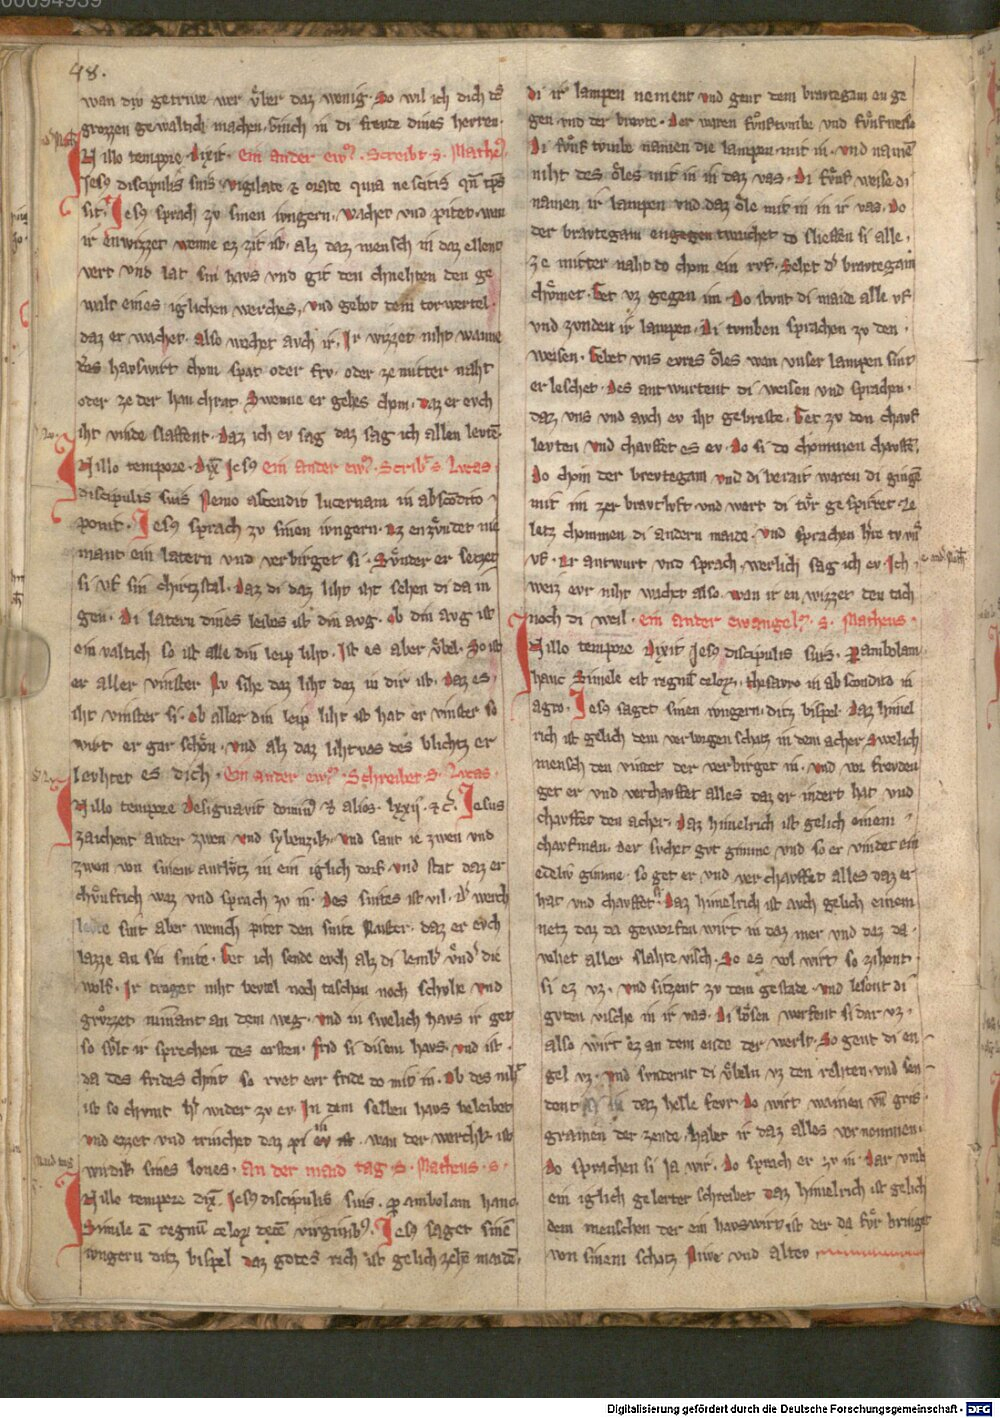 48.
wan div getriwe wer vͤber daz wenig. So wil ich dich vͤb
grozzen gewaltich machen. Ginch in di frevde dines herren.
N illo tempore. Dixit. Ein ander ew͛. Screibt. s. Mathe͛.
Jesus discipulis suis. vigilate et orate quia nescitis qn̄ tp̄s
sit. Jesus sprach zv sinen ivngern. wachet vnd pitet. wan
ir enwizzet wenne ez zit ist. alz daz mensch in daz ellent
vert vnd lat sin havs vnd git den chnehten den ge
walt eines iglichen werches. vnd gebot dem torwertel.
daz er wachet. also wachet avch ir. Ir wizzet niht wanne
des havswirt chom spat oder frv. oder ze mitter naht
oder ze der han chrat. Swenne er gehes chom. daz er evch
iht vinde slaffent. daz ich ev sag daz sag ich allen levten.
N illo tempore. Dix̄ Jesus ein ander ew͛. Scribt. s. Lvcas.
discipulis suis Nemo ascendit lucernam in abscondito
ponit. Jesus sprach zv sinen ivngern. Ez enzvͤndet nie
mant ein latern vnd verbirget si. Svͤnder er setzet
si vf sin chirtzstal. daz di daz liht iht sehen di da in
gen. Di latern dines leibes ist din avg. ob din avg ist
ein valtich so ist alle din leip liht. Ist es aber vͤbel. So ist
er aller vinster Nv sihe daz liht daz in dir ist. daz es
iht vinster si. ob aller din leip liht ist hat er vinster so
wirt er gar schoͤn. vnd alz daz lihtvas des blichtz er
levhtet es dich. Ein ander ew͛. Schreibet. s. Lvcas.
N illo tempore designavit dominus et alios. lxxii. etc. Jesus
zaichent ander zwen vnd sybenzik. vnd sant ie zwen vnd
zwen von sinem antlvͤtz in ein iglich dorf. vnd stat daz er
chvͤnftich waz vnd sprach zv in. Des snites ist vil. d͛ werch
levte sint aber wenich pitet den snite Maister. daz er evch
lazze an sin snite. Get ich sende evch alz di lemb͛ vnd͛ die
wolf. Ir traget niht bevtel noch taschen noch schvhe vnd
grvͤzzet niemant an dem weg. vnd in swelich havs ir get
so svlt ir sprechen des ersten. frid si disem havs. vnd ist
da des frides chint so rvet evr fride do mit in. Ob des niht
ist so chvmt h͛ wider zv ev. In dem selben havs beleibet
vnd ezzet vnd trinchet daz pi in ist. wan der werchk ist
wirdik sines lones. An der maid tag. s. Matheus. s.
N illo tempore dix̄. Jesus discipulis suis. parambolam hanc
Simile est regnum celorum decem virginibus. Jesus saget sinen
ivngern ditz bispel daz gotes rich ist gelich zehen maiden.
di ir lampen nement vnd gent dem bravtegam en ge
gen. vnd der bravte. Der waren fvͤnf tvmbe vnd fvͤnf weise
Di fvͤnf tvmbe namen die lampen mit in. vnd namen
niht des oͤles mit in in daz vas. Di fvͤnf weise di
namen ir lampen vnd daz oͤle mit in in ir vas. Do
der bravtegam engegen twachet do slieffen si alle.
ze mitter naht do chom ein rvf. Sehet d͛ bravtegam
choͤmet. Get vz gegen im. Do stvnt di maide alle vf
vnd zvnden ir lampen. Di tvmben sprachen zv den
weisen. Gebet vns evres oͤles wan vnser lampen sint
erleschet. Des antwurtent di weisen vnd sprachen.
daz vns vnd avch ev iht gebreste. Get zv den chavf
levten vnd chavffet es ev. Do si do chommen chavffen
do chom der brevtegam vnd di berait waren di gingen
mit im zer bravtloft vnd wert di tvͤr gespirret. ze
letz chommen di andern maide. vnd sprachen h͛re tv vns
vf. Er antwurt vnd sprach. werlich sag ich ev. Ich
weiz evr niht wachet also. wan ir en wizzet den tach
noch di weil. ein ander ewangel͛. s. Matheus.
N illo tempore Dixit Jesus discipulis suis. Parambolam
hanc Simile est regnum celorum. thesavro in abscondito in
agro. Jesus saget sinen ivngern. ditz bispel. daz himel
rich ist gelich dem verborgen schatz in dem acher. Swelich
mensch den vindet der verbirget in. vnd vor frevden
get er vnd verchavffet alles daz er indert hat vnd
chavffet den acher. daz himelrich ist gelich einem
chavfman. der svchet gvt gimme vnd so er vindet ein
edeliv gimme. so get er vnd verchavffet alles daz er
hat vnd chavffet si. Daz himelrich ist avch gelich einem
netz daz da geworfen wirt in daz mer vnd daz da
vahet aller slahte visch. So es vol wirt so zihent
si ez vz. vnd sitzent zv dem gestade. vnd lesent di
gvten vische in ir vas. di boͤsen werfent si dar vz.
also wirt ez an dem ende der werlt. So gent di en
gel vz. vnd svnderut di vͤbeln vz den rehten. vnd sen
dent si in daz helle fevr. do wirt wainen vnd gris
gramen der zende. habet ir daz alles vernommen.
do sprachen si Ja wir. Do sprach er zv in. dar vmb
ein iglich gelerter schreiber daz himelrich ist gelich
dem menschen der ein havswirt ist der da fvͤr bringet
von sinem schatz Niwe vnd altev
Digitalisierung gefördert durch die Deutsche Forschungsgemeinschaft - DFG